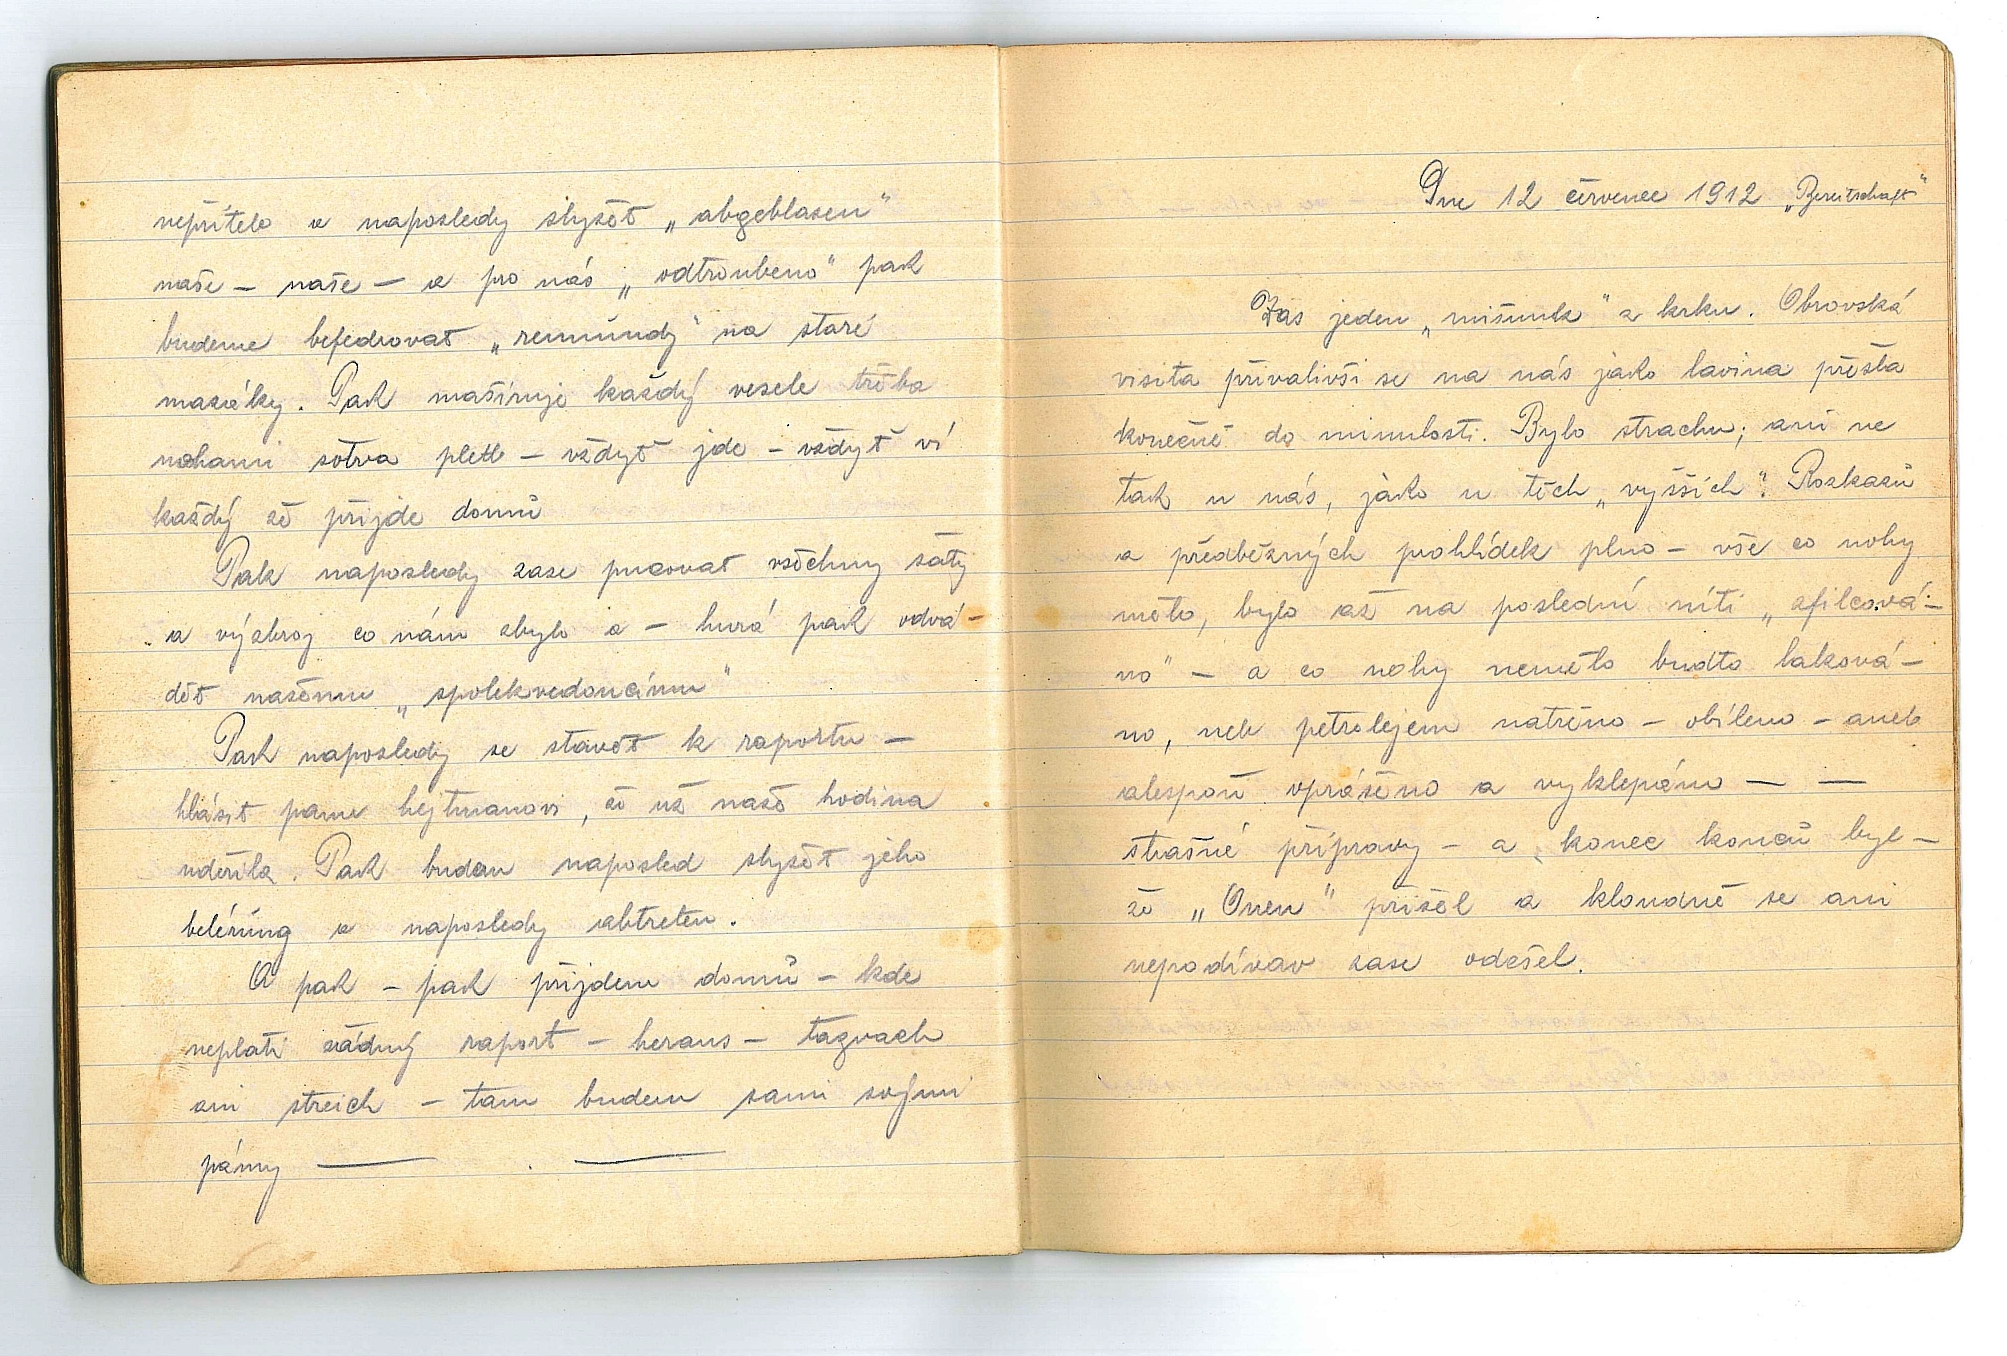 nepřítele a naposledy slyšet „abgeblasen"
naše – naše – a pro nás „odtroubeno" pak
budeme befedrovat „remundy" na staré
mazáky. Pak mašíruje každý vesele třeba
nohami sotva pletl – vždyť jde – vždyť ví
každý že přijde domů
Pak naposledy zase pucovat všechny šaty
a výzbroj co nám zbylo a – hurá pak odvá-
dět našemu „spolekvedoucímu"
Pak naposledy se stavět k raportu –
hlásit panu hejtmanovi, že už naše hodina
udeřila. Pak budem naposled slyšet jeho
belérüng a naposledy abtreten.
A pak – pak přijdem domů – kde
neplatí žádný raport – heraus – tagvach
ani streich – tam budem sami svými
pány — . —
Dne 12 červenec 1912 „Bereitschaft"
Zas jeden „mišunk" z krku. Obrovská
visita přivalivši se na nás jako lavina přešla
konečně do minulosti. Bylo strachu; ani ne
tak u nás, jako u těch „vyšších". Rozkazů
a předběžných prohlídek plno – vše co nohy
mělo, bylo až na poslední niti „afilcová-
no" – a co nohy nemělo budto laková-
no, neb petrolejem natřeno – obíleno – aneb
alespoň oprášeno a vyklepáno — —
strašné přípravy – a konec konců byl –
že „Onen" přišel a kloudně se ani
nepodívav zase odešel.